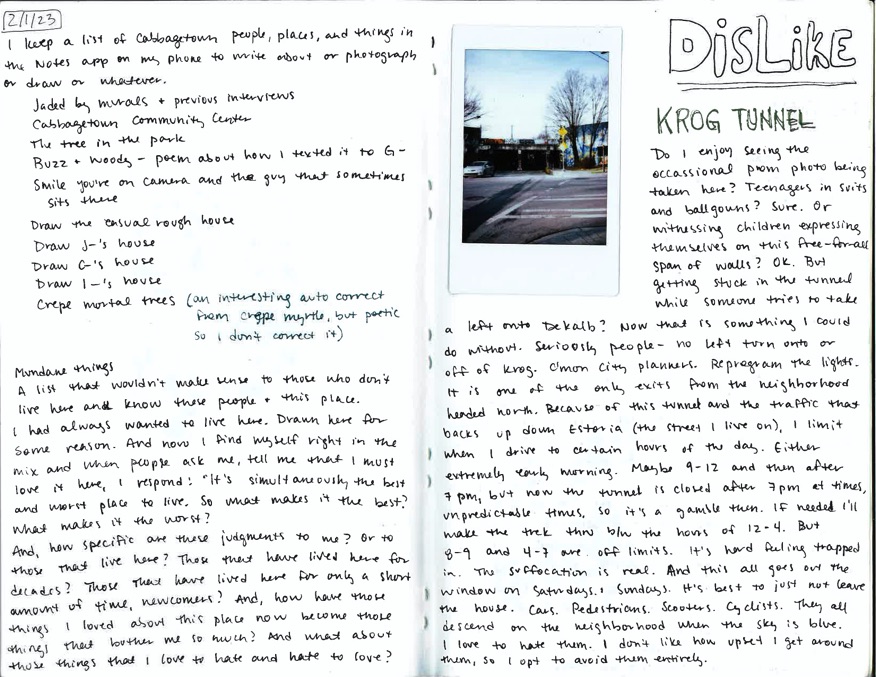 2/1/23
I keep a list of Cabbagetown people, places, and things in
the Notes app on my phone to write about or photograph
or draw or whatever.
Jaded by murals + previous interviews
Cabbagetown Community Center
The tree in the park
Buzz + Woody - poem about how I texted it to G-
Smile you're on camera and the guy that sometimes
sits there
Draw the casual rough house
Draw J-'s house
Draw C-'s house
Draw I-'s house
Crepe mortal trees (an interesting auto correct
from crepe myrtle, but poetic
so I don't correct it)
Mundane things
A list that wouldn't make sense to those who don't
live here and know these people + this place.
I had always wanted to live here. Drawn here for
some reason. And now I find myself right in the
mix and when people ask me, tell me that I must
love it here, I respond: "It's simultaneously the best
and worst place to live. So what makes it the best?
What makes it the worst?
And, how specific are these judgments to me? Or to
those that live here? Those that have lived here for
decades? Those that have lived here for only a short
amount of time, newcomers? And, how have those
things I loved about this place now become those
things that bother me so much? And what about
those things that I love to hate and hate to love?
DISLIKE
KROG TUNNEL
Do I enjoy seeing the
occassional prom photo being
taken here? Teenagers in suits
and ballgowns? Sure. Or
witnessing children expressing
themselves on this free-for-all
span of walls? OK. But
getting stuck in the tunnel
while someone tries to take
a left onto Dekalb? Now that is something I could
do without. Seriously people - no left turn onto or
off of Krog. C'mon City planners. Reprogram the lights.
It is one of the only exits from the neighborhood
headed north. Because of this tunnel and the traffic that
backs up down Estoria (the street I live on), I limit
when I drive to certain hours of the day. Either
extremely early morning. Maybe 9-12 and then after
7pm, but now the tunnel is closed after 7pm at times,
unpredictable times, so it's a gamble then. If needed I'll
make the trek thru b/w the hours of 12-4. But
8-9 and 4-7 are off limits. It's hard feeling trapped
in. The suffocation is real. And this all goes out the
window on Saturdays + Sundays. It's best to just not leave
the house. Cars. Pedestrians. Scooters. Cyclists. They all
descend on the neighborhood when the sky is blue.
I love to hate them. I don't like how upset I get around
them, so I opt to avoid them entirely.